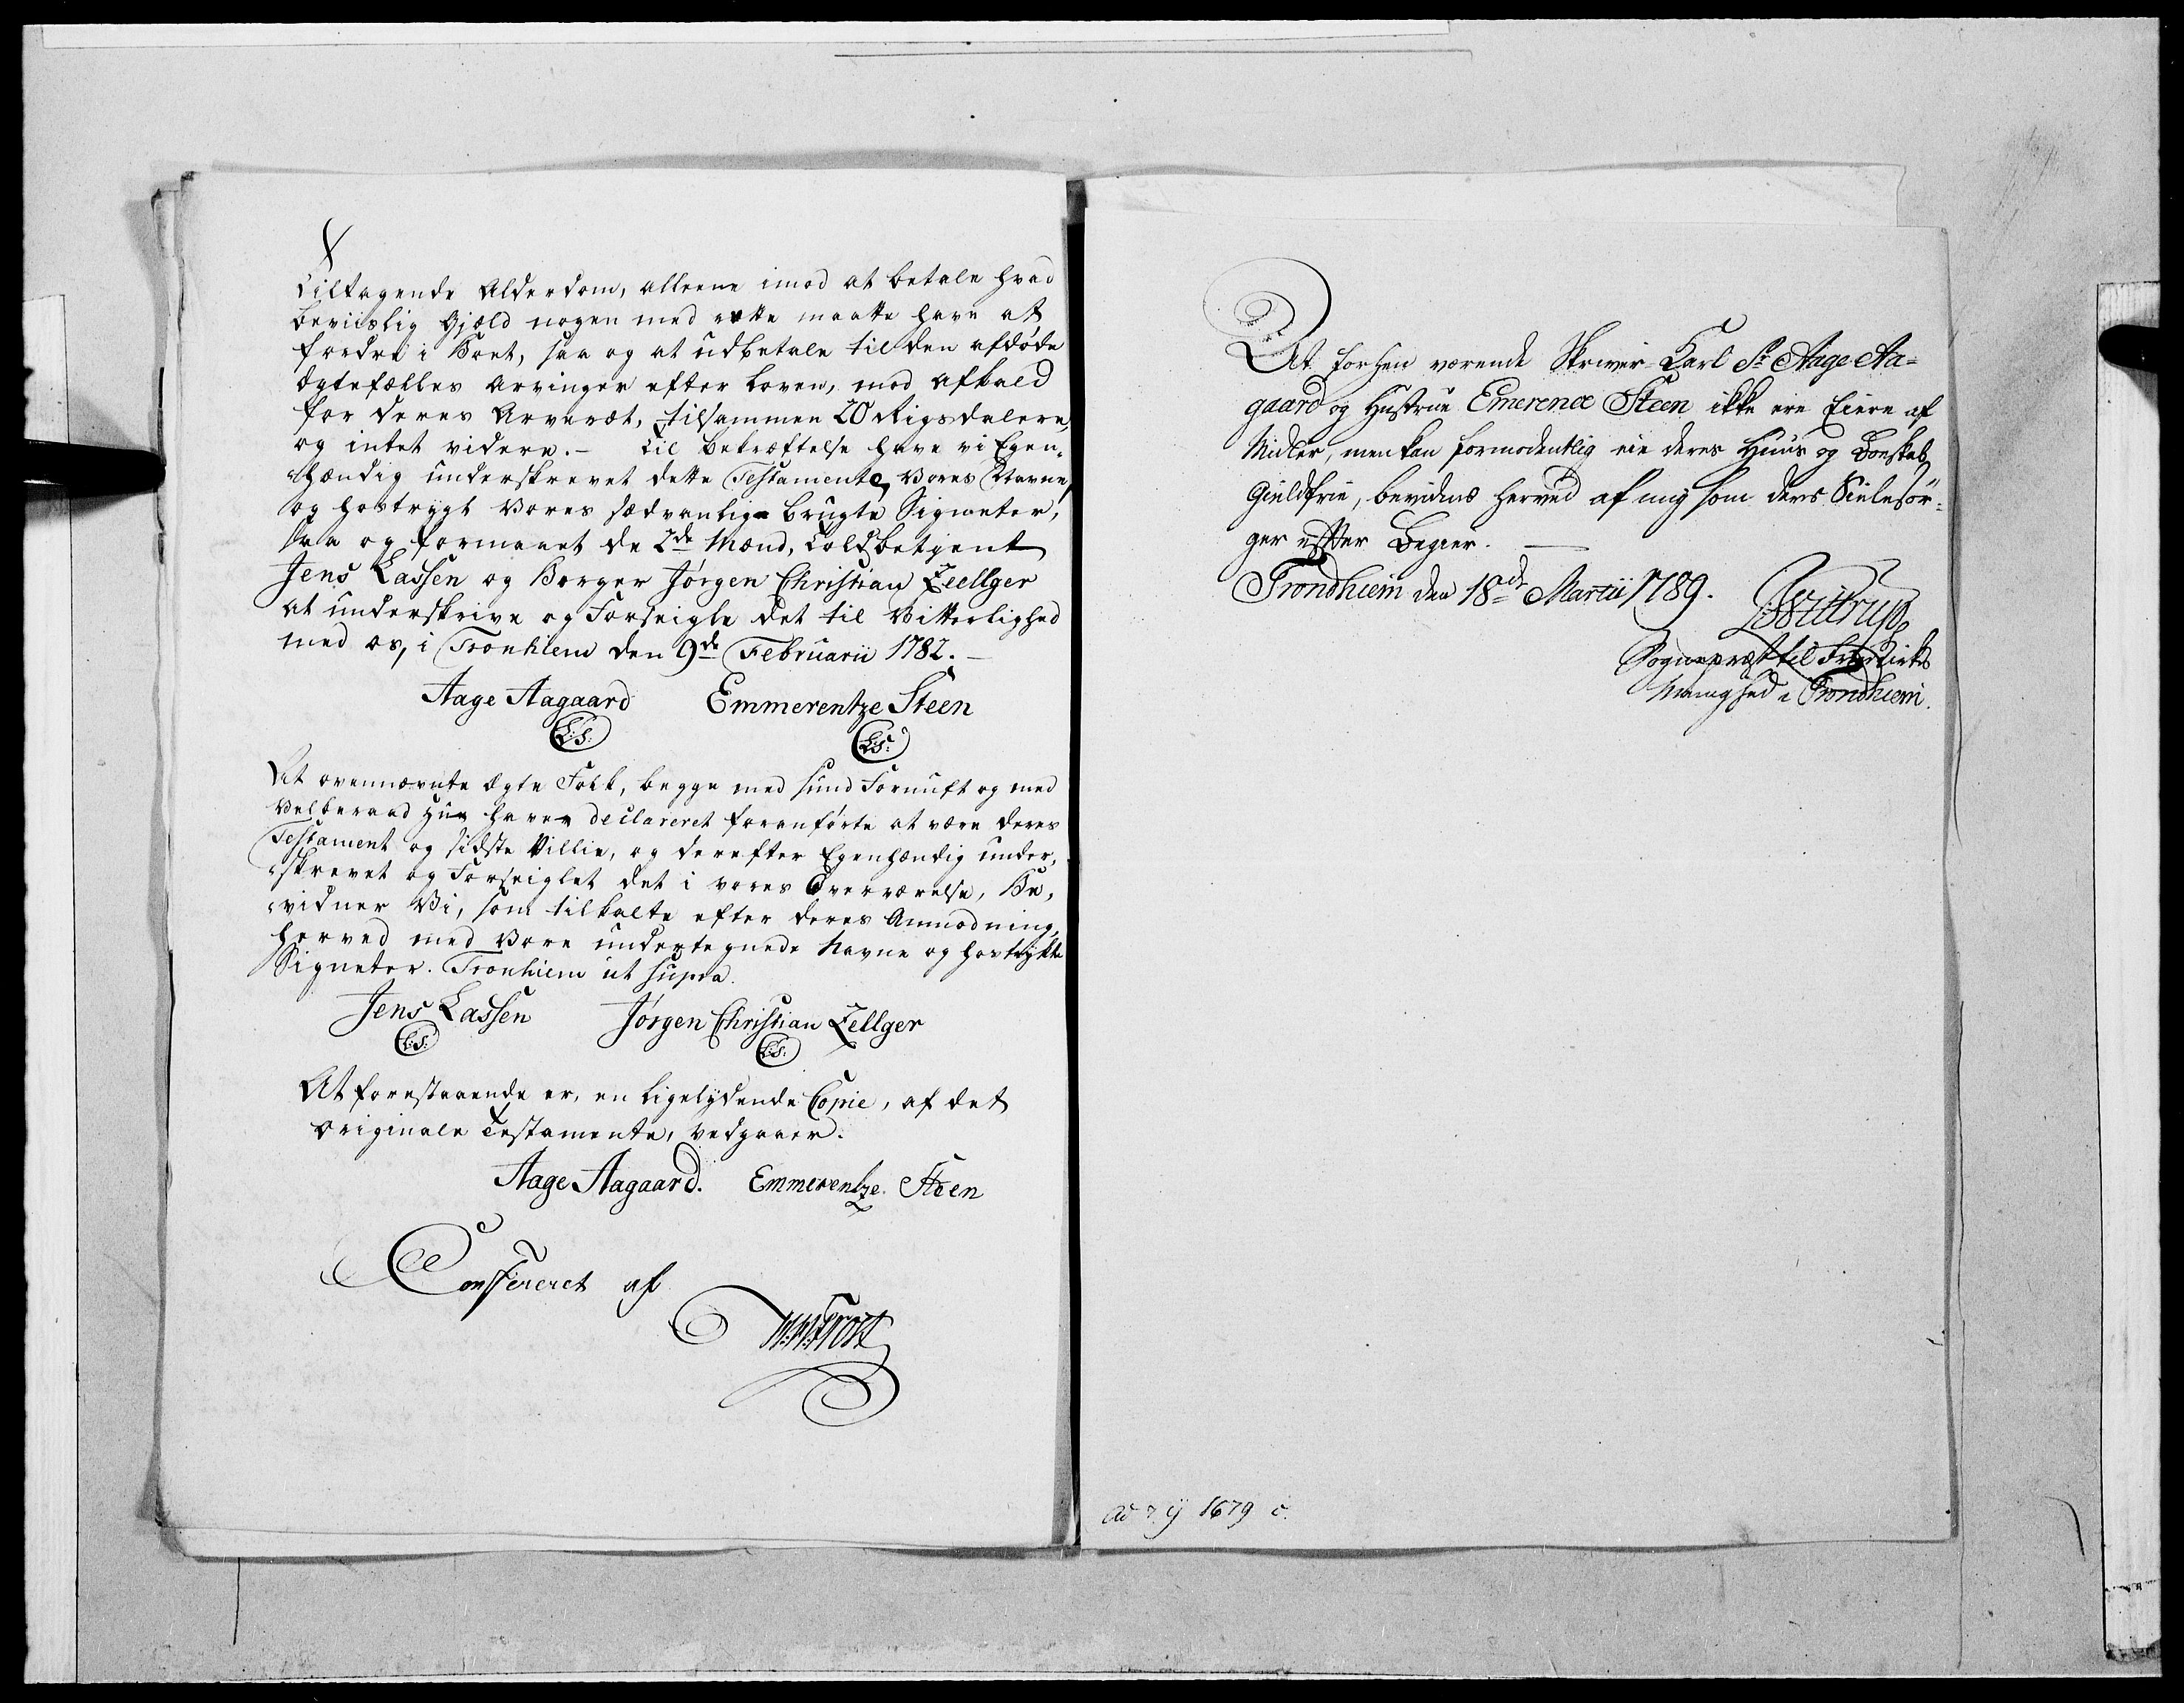 tiltagende Alderdom, alleene imod at betale hvad
beviislig Gjæld nogen med rette maatte have at
fordre i Boet, saa og at udbetale til den afdøde
Ægtefælles Arvinger efter Loven, mod Afkald
for deres Arveræt, tilsammen 20 Rigsdalere,
og intet videre. – Til Bekræftelse have vi Egen-
hændig underskrevet dette Testamente, Vores Navne,
og hostrygt Vores sædvanlige brugte Signeter,
saa og formaaet de 2de Mænd, Toldbetjent
Jens Lassen og Borger Jørgen Christian Zeellger
at underskrive og Forseigle det til Vitterlighed
med os, i Tronhiem den 9de Februarii 1782. –
Aage Aagaard Emmerentze Steen
L:S: L:S:
At ovennævnte Ægte Folk, begge med sund Fornuft og med
Velberaad Hu have declareret foranførte at være deres
Testament og sidste Villie, og derefter Egenhændig under-
skrevet og Forseiglet det i vores Overværelse, Be-
vidner Vi, som tilkalte efter deres Anmodning,
herved med Vore undertegnede Navne og hostrykte
Signeter. Tronhiem ut supra.
Jens Lassen Jörgen Christian Zellger
L:S: L:S:
At forestaaende er, en Ligelydende Copie, af det
Originale Testamente, vedgaaer.
Aage Aagaard. Emmerentze Steen
Confereret af
At forhen værende Skriver-Karl Sr. Aage Aa-
gaard og Hustrue Emerence Steen ikke ere Eiere af
Midler, men kan formodentlig eie deres Huus og Boeskab
Gieldfrie, bevidnes herved af mig som deres Siælesör-
ger efter Begier. —
Trondhiem den 18de Martii 1789.
Wittrup
Sognepræst til Frue Kirkes
Menighed i Trondhiem.
1679